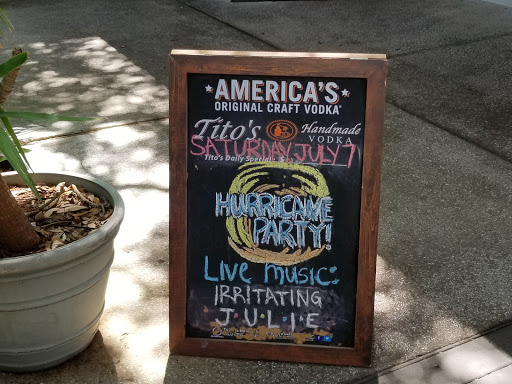 AMERICA'S
ORIGINAL CRAFT VODKA
Tito's Handmade
VODKA
SATURDAY JULY 7
Tito's Daily Special
HURRICANE
PARTY!
LIVE MUSIC:
IRRITATING
J•U•L•I•E